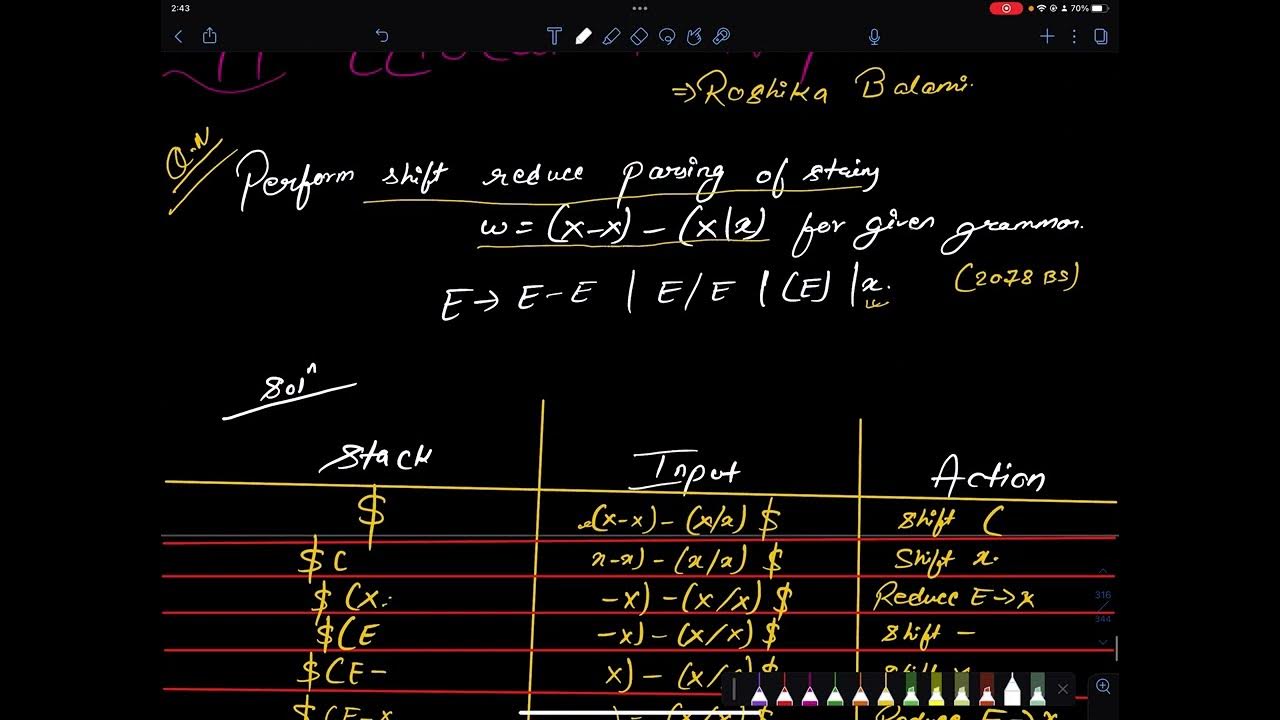 2:43
70%
⇒ Roshika Balami.
Q.N
Perform shift reduce parsing of string
w = (x-x) - (x/x) for given grammar.
E → E-E | E/E | (E) | x. (2078 BS)
Solⁿ
Stack Input Action
$ (x-x) - (x/x) $ Shift (
$ ( x-x) - (x/x) $ Shift x.
$ (x -x) - (x/x) $ Reduce E→x
$ (E -x) - (x/x) $ Shift -
$ (E- x) - (x/x) $
$ (E-x Reduce E→x
316
344